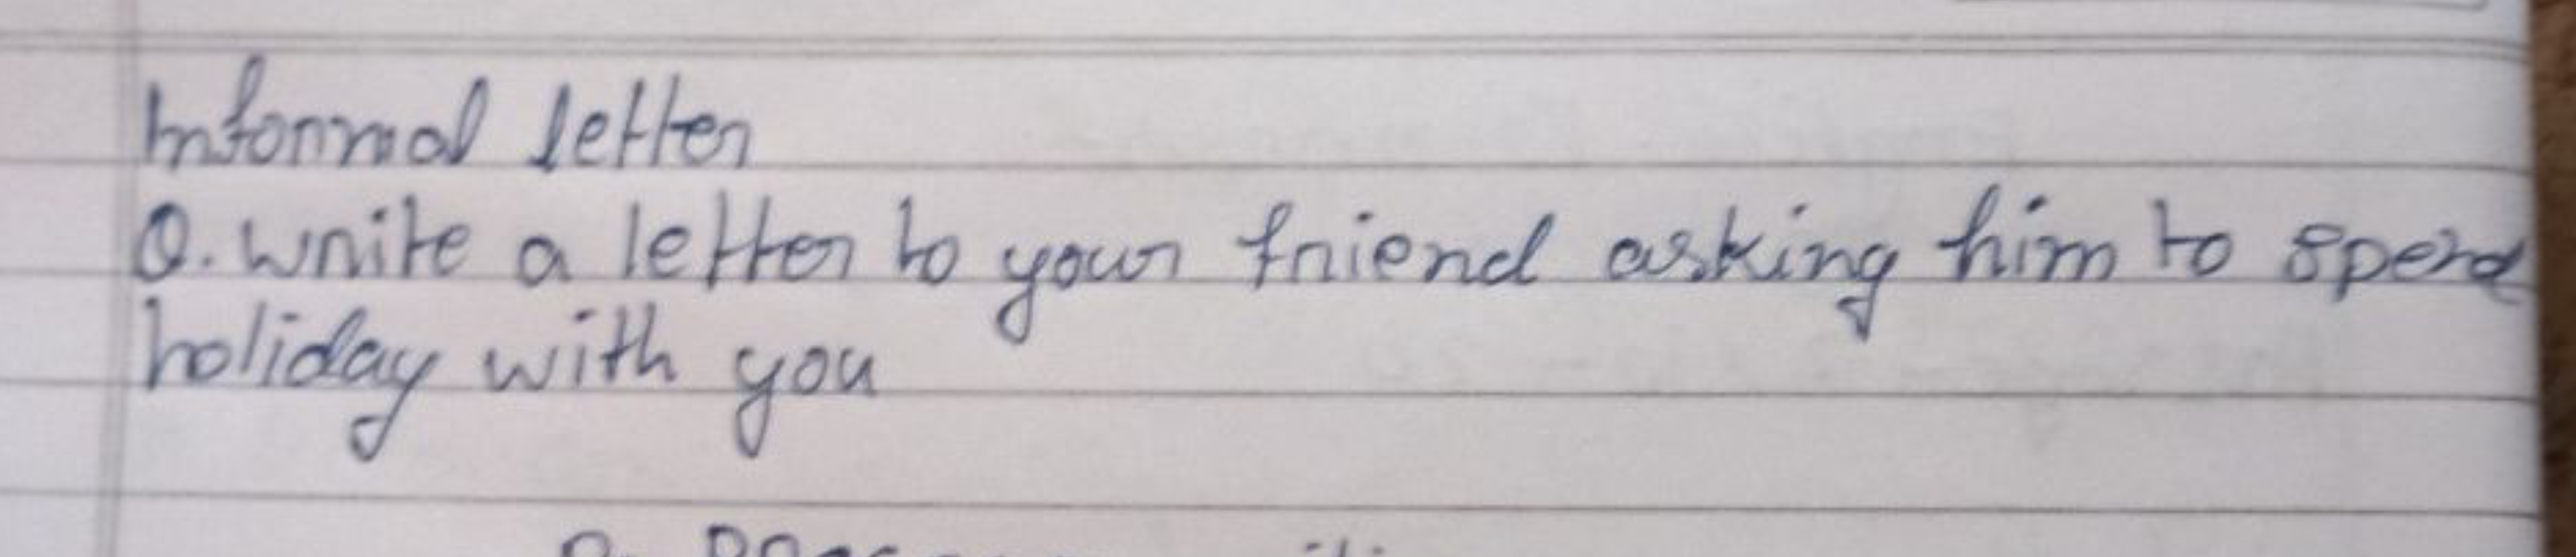 Informal letter
Q. write a letter to your friend asking him to spend
holiday with you